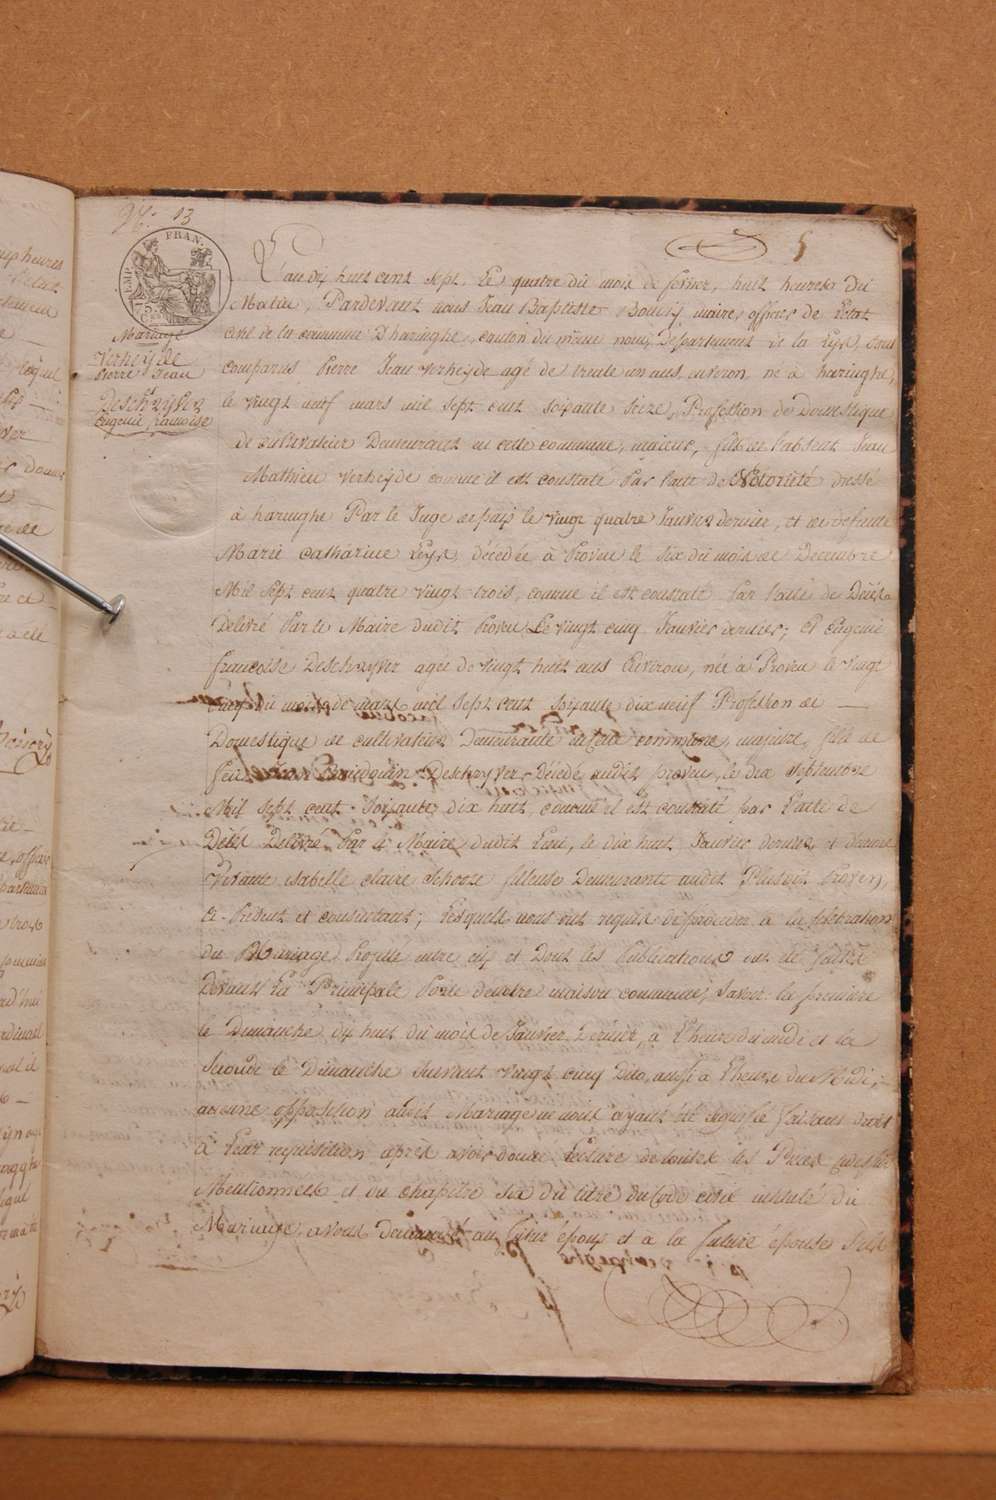 13
5
EMP. FRAN.
Mariage
Verheyde
Pierre Jean
Deschryver
Eugenie françoise
L'an dix huit cent sept, Le quatre du mois de fevrier, huit heures du
Matin, Pardevant nous Jean Baptiste Bouery, maire, officier de l'état
civil de la commune D'haringhe, canton du même nom, Departement de la Lys, sont
comparus Pierre Jean Verheyde agé de trente un ans, environ, né à haringhe,
le vingt neuf mars mil sept cent soixante seize, Profession de Domestique
de cultivateur Demeurant en cette commune, majeur, fils de l'absent Jean
Mathieu Verheyde comme il est constaté Par l'acte de Notorieté dressé
à haringhe Par le Juge de paix le Vingt quatre Janvier dernier, et de defunte
Marie Catharine Leys, décedée à Proven le six du mois de Decembre
Mil sept cent quatre vingt trois, comme il est constaté Par l'acte de Décès
Delivré Par le Maire dudit Proven Le vingt cinq Janvier dernier; et Eugenie
françoise Deschryver agée de vingt huit ans Environ, née à Proven le vingt
du mois de mars mil sept cent soixante dix neuf Profession de —
Domestique de cultivateur Demeurante en cette commune, majeure, fille de
feu Deschryver Décédé audit Proven, le dix septembre
Mil sept cent soixante dix huit, comme il est constaté par l'acte de
Décès Delivré Par le Maire dudit Lieu, le dix huit Janvier dernier, et d'encore
Vivante isabelle claire fileuse Demeurante audit Plusdit Proven,
ci-Présent et consentant; Lesquels nous ont requis de proceder à la celebration
du Mariage Projetté entre eux et Dont les Publications ont été faites
Devant La Principale Porte de notre maison commune, Savoir la premiere
le Dimanche dix huit du mois de Janvier Dernier, à l'heure du midi et la
Seconde le Dimanche suivant vingt cinq Dito, aussi à l'heure du Midi;
aucune opposition audit Mariage ne nous ayant été signifié faisant droit
à Leur requisition après avoir donné Lecture de toutes les Pieces cidessus
Mentionnées et du chapitre six du titre du Code civil intitulé du
Mariage, avons Demandé au futur époux et à la future épouse s'ils